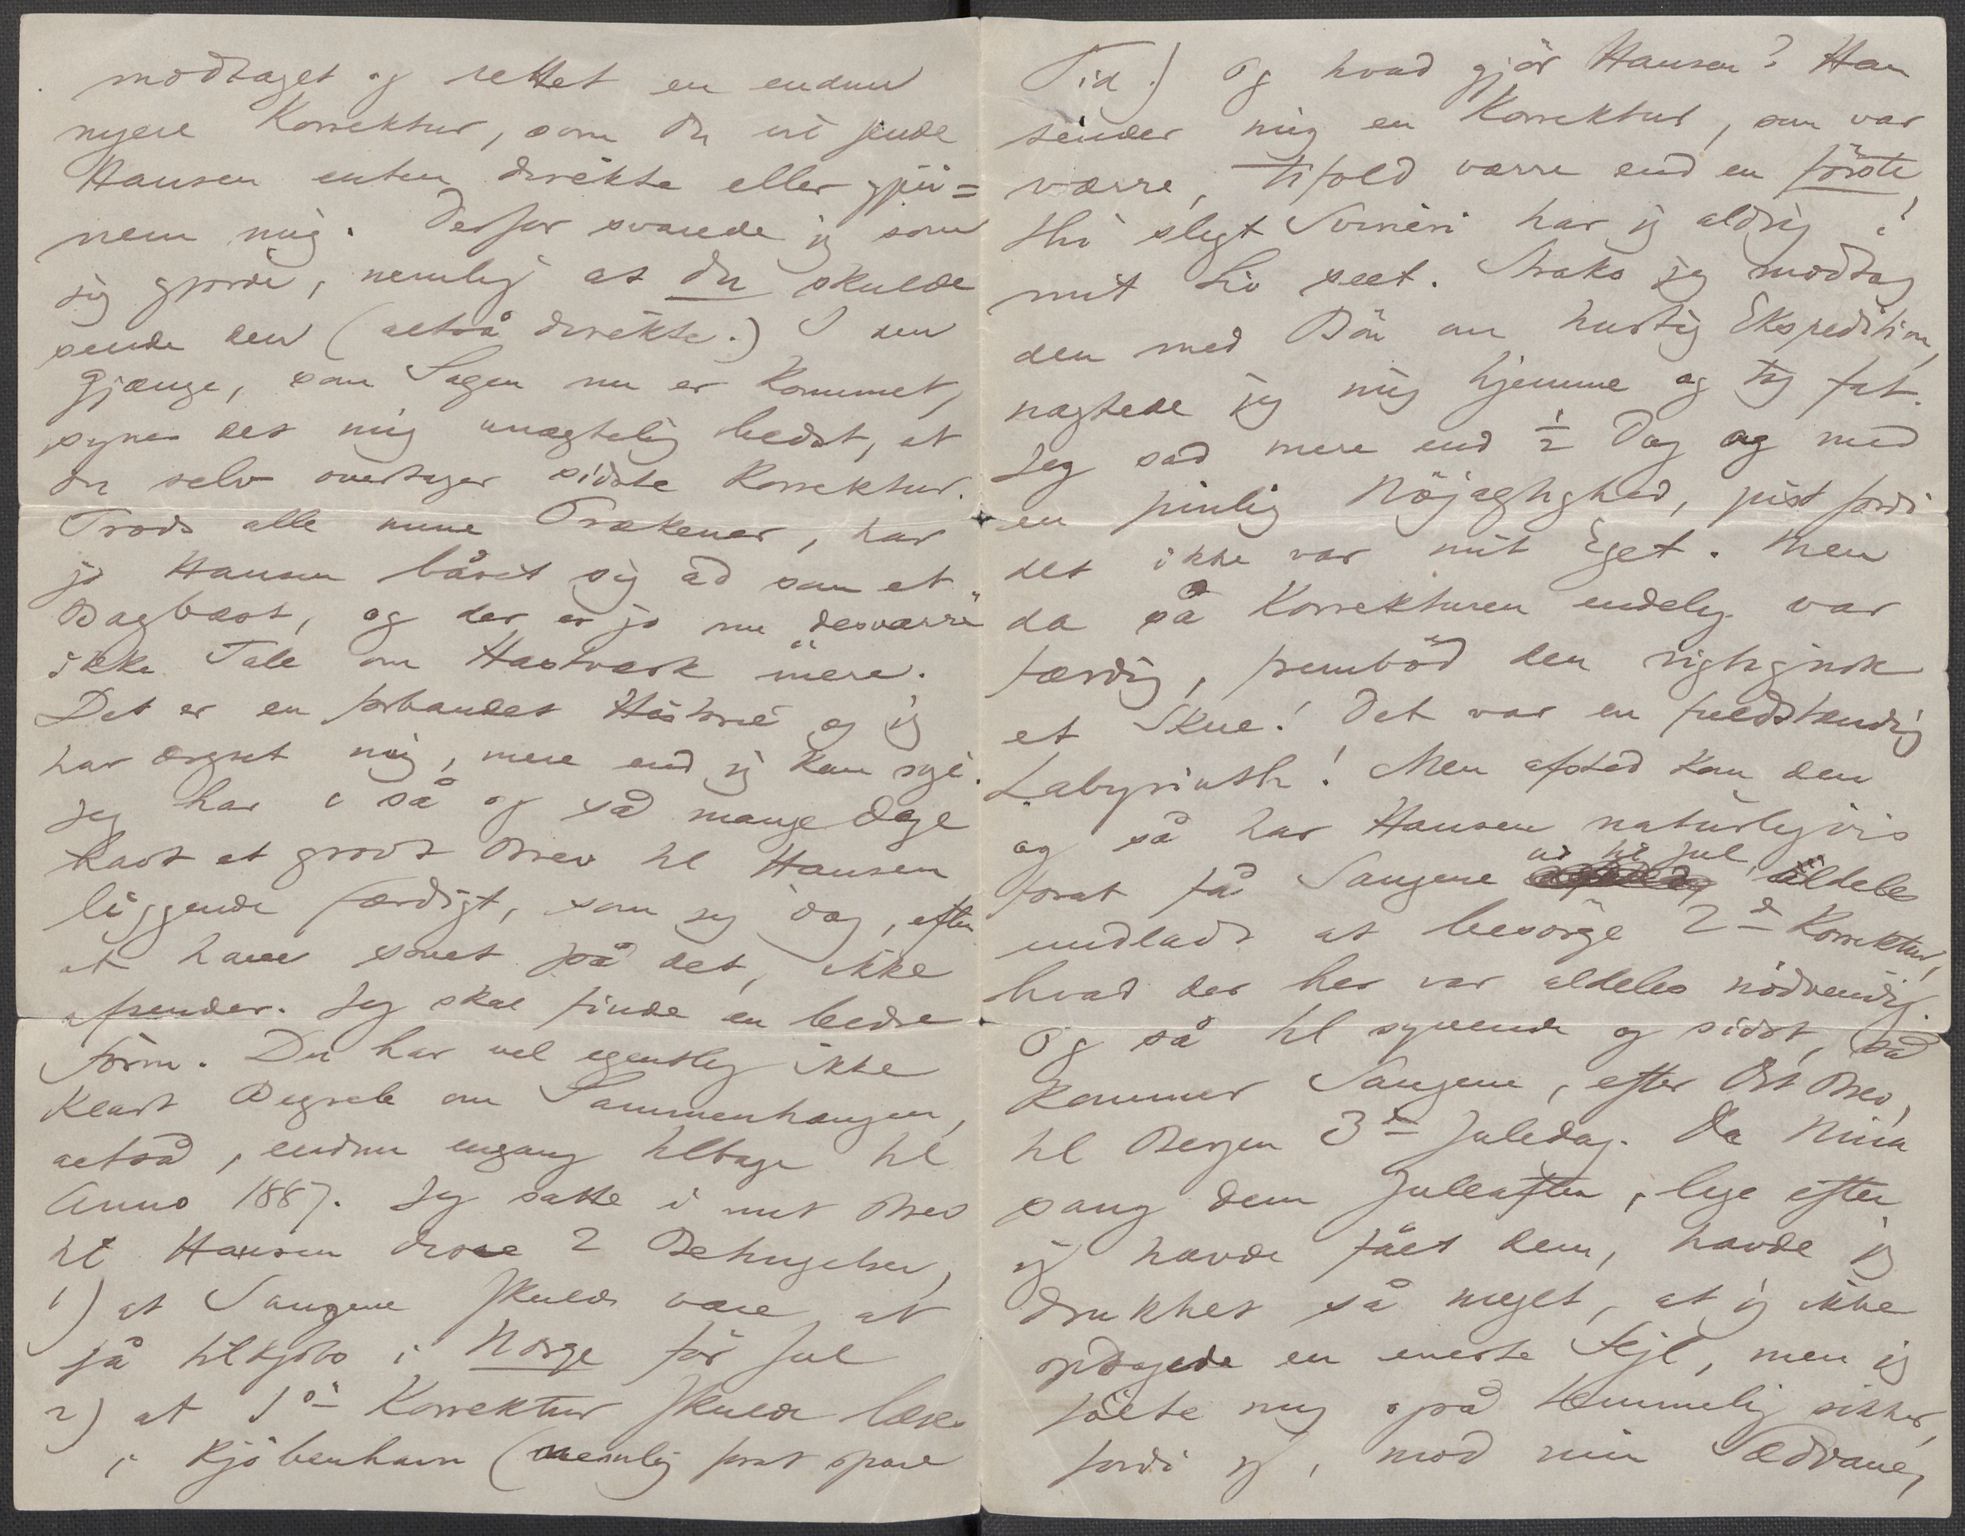 modtaget og rettet en endnu
nyere Korrektur, som Du vil sende
Hansen enten direkte eller gjen=
nem mig. Derfor svarede jeg som
jeg gjorde, nemlig at Du skulde
sende den (altså direkte.) I den
Gjænge, som Sagen nu er kommet,
synes det mig unægtelig bedst, at
Du selv overtager sidste Korrektur.
Trods alle mine Prækener, har
jo Hansen båret sig ad som et
Bagbæst, og der er jo nu desværre
ikke Tale om Hastværk mere.
Det er en forbandet Historie og jeg
har ærgret mig, mere end jeg kan sige.
Jeg har i så og så mange Dage
havt et grovt Brev til Hansen
liggende færdigt, som jeg idag, efter
at have sovet på det, ikke
afsender. Jeg skal finde en bedre
Form. Du har vel egentlig ikke
klart Begreb om Sammenhængen,
altså, endnu engang tilbage til
Anno 1887. Jeg satte i mit Brev
til Hansen disse 2 Betingelser,
1) at Sangene skulde være at
få tilkjøbs i Norge før Jul
2) at 1ste Korrektur skulde læses
i Kjøbenhavn (nemlig forat spare
Tid.) Og hvad gjör Hansen? Han
sender mig en Korrektur, som var
værre, tifold værre end en förste,
thi sligt Svineri har jeg aldrig i
mit Liv seet. Straks jeg modtog
den med Bön om hurtig Ekspedition,
nægtede jeg mig hjemme og tog fat.
Jeg sad mere end ½ Dag og med
en pinlig Nöjagtighed, just fordi
det ikke var mit Eget. Men
da så Korrekturen endelig var
færdig, frembød den rigtignok
et Skue! Det var en fuldstændig
Labyrinth! Men afsted kom den
og så har Hansen naturligvis
forat få Sangene ud til Jul, aldeles
undladt at besörge 2d Korrektur,
hvad der her var aldeles nödvendig.
Og så til syvende og sidst, så
kommer Sangene, efter Dit Brev,
til Bergen 3die Juledag. Da Nina
sang dem Juleaften, lige efter
jeg havde fået dem, havde jeg
drukket så meget, at jeg ikke
opdagede en eneste Fejl, men jeg
følte mig også temmelig sikker,
fordi jeg, mod min Sædvane,